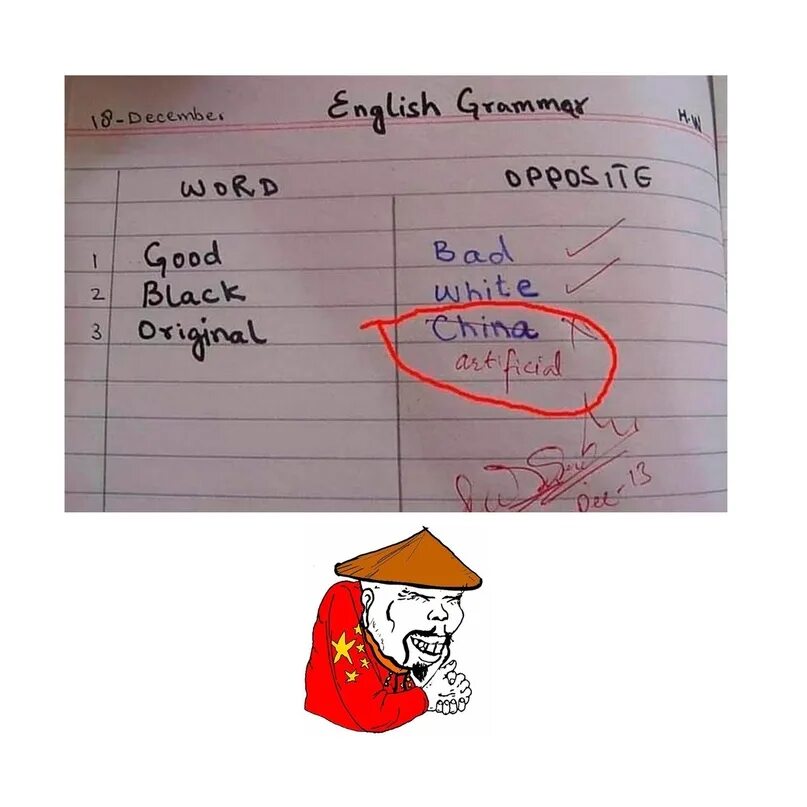 18-December English Grammar H.W
WORD OPPOSITE
1 Good Bad
2 Black White
3 Original China
artificial
Dec-13